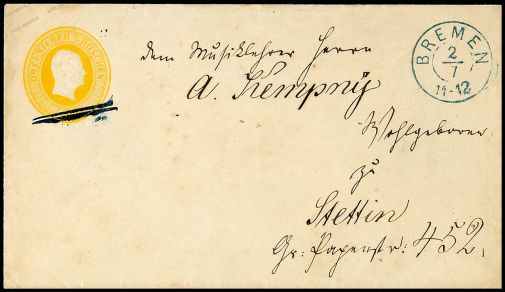 DREI SILBERGROSCHEN
BREMEN
2
7
11-12
dem Musiklehrer Herrn
A. Kempny
Wohlgeboren
zu
Stettin
Gr. Papenstr: 452.